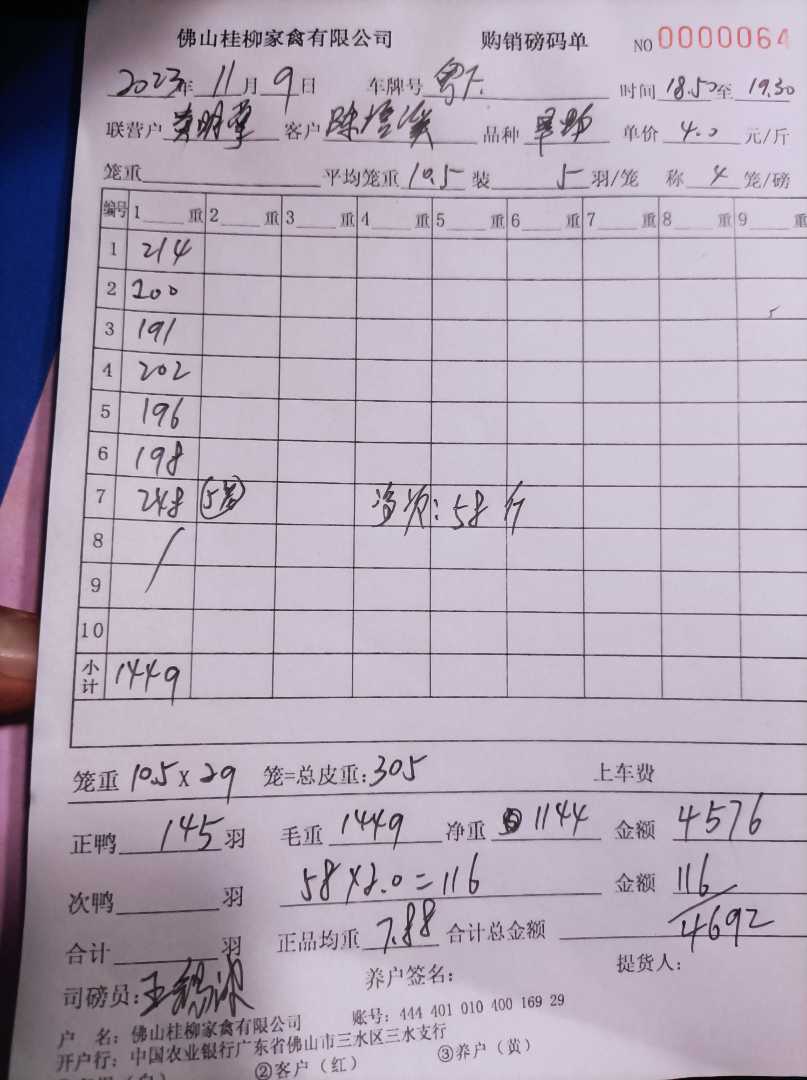 佛山桂柳家禽有限公司 购销磅码单 NO 0000064
2023年 11月 9日 车牌号 时间 18.50至 19.30
联营户 黄明 客户 陈 品种 单价 4.0 元/斤
笼重 平均笼重 10.5 装 5 羽/笼 称 4 笼/磅
编号 1 重 2 重 3 重 4 重 5 重 6 重 7 重 8 重 9 重
1 214
2 200
3 191
4 202
5 196
6 198
7 248 5笼 次:58斤
8
9
10
小计 1449
笼重 10.5 x 29 笼=总皮重:305 上车费
正鸭 145 羽 毛重 1449 净重 1144 金额 4576
次鸭 羽 58 x 2.0 = 116 金额 116
合计 羽 正品均重 7.88 合计总金额 4692
司磅员:王 养户签名: 提货人:
户 名:佛山桂柳家禽有限公司 账号:444 401 010 400 169 29
开户行:中国农业银行广东省佛山市三水区三水支行
②客户(红) ③养户(黄)